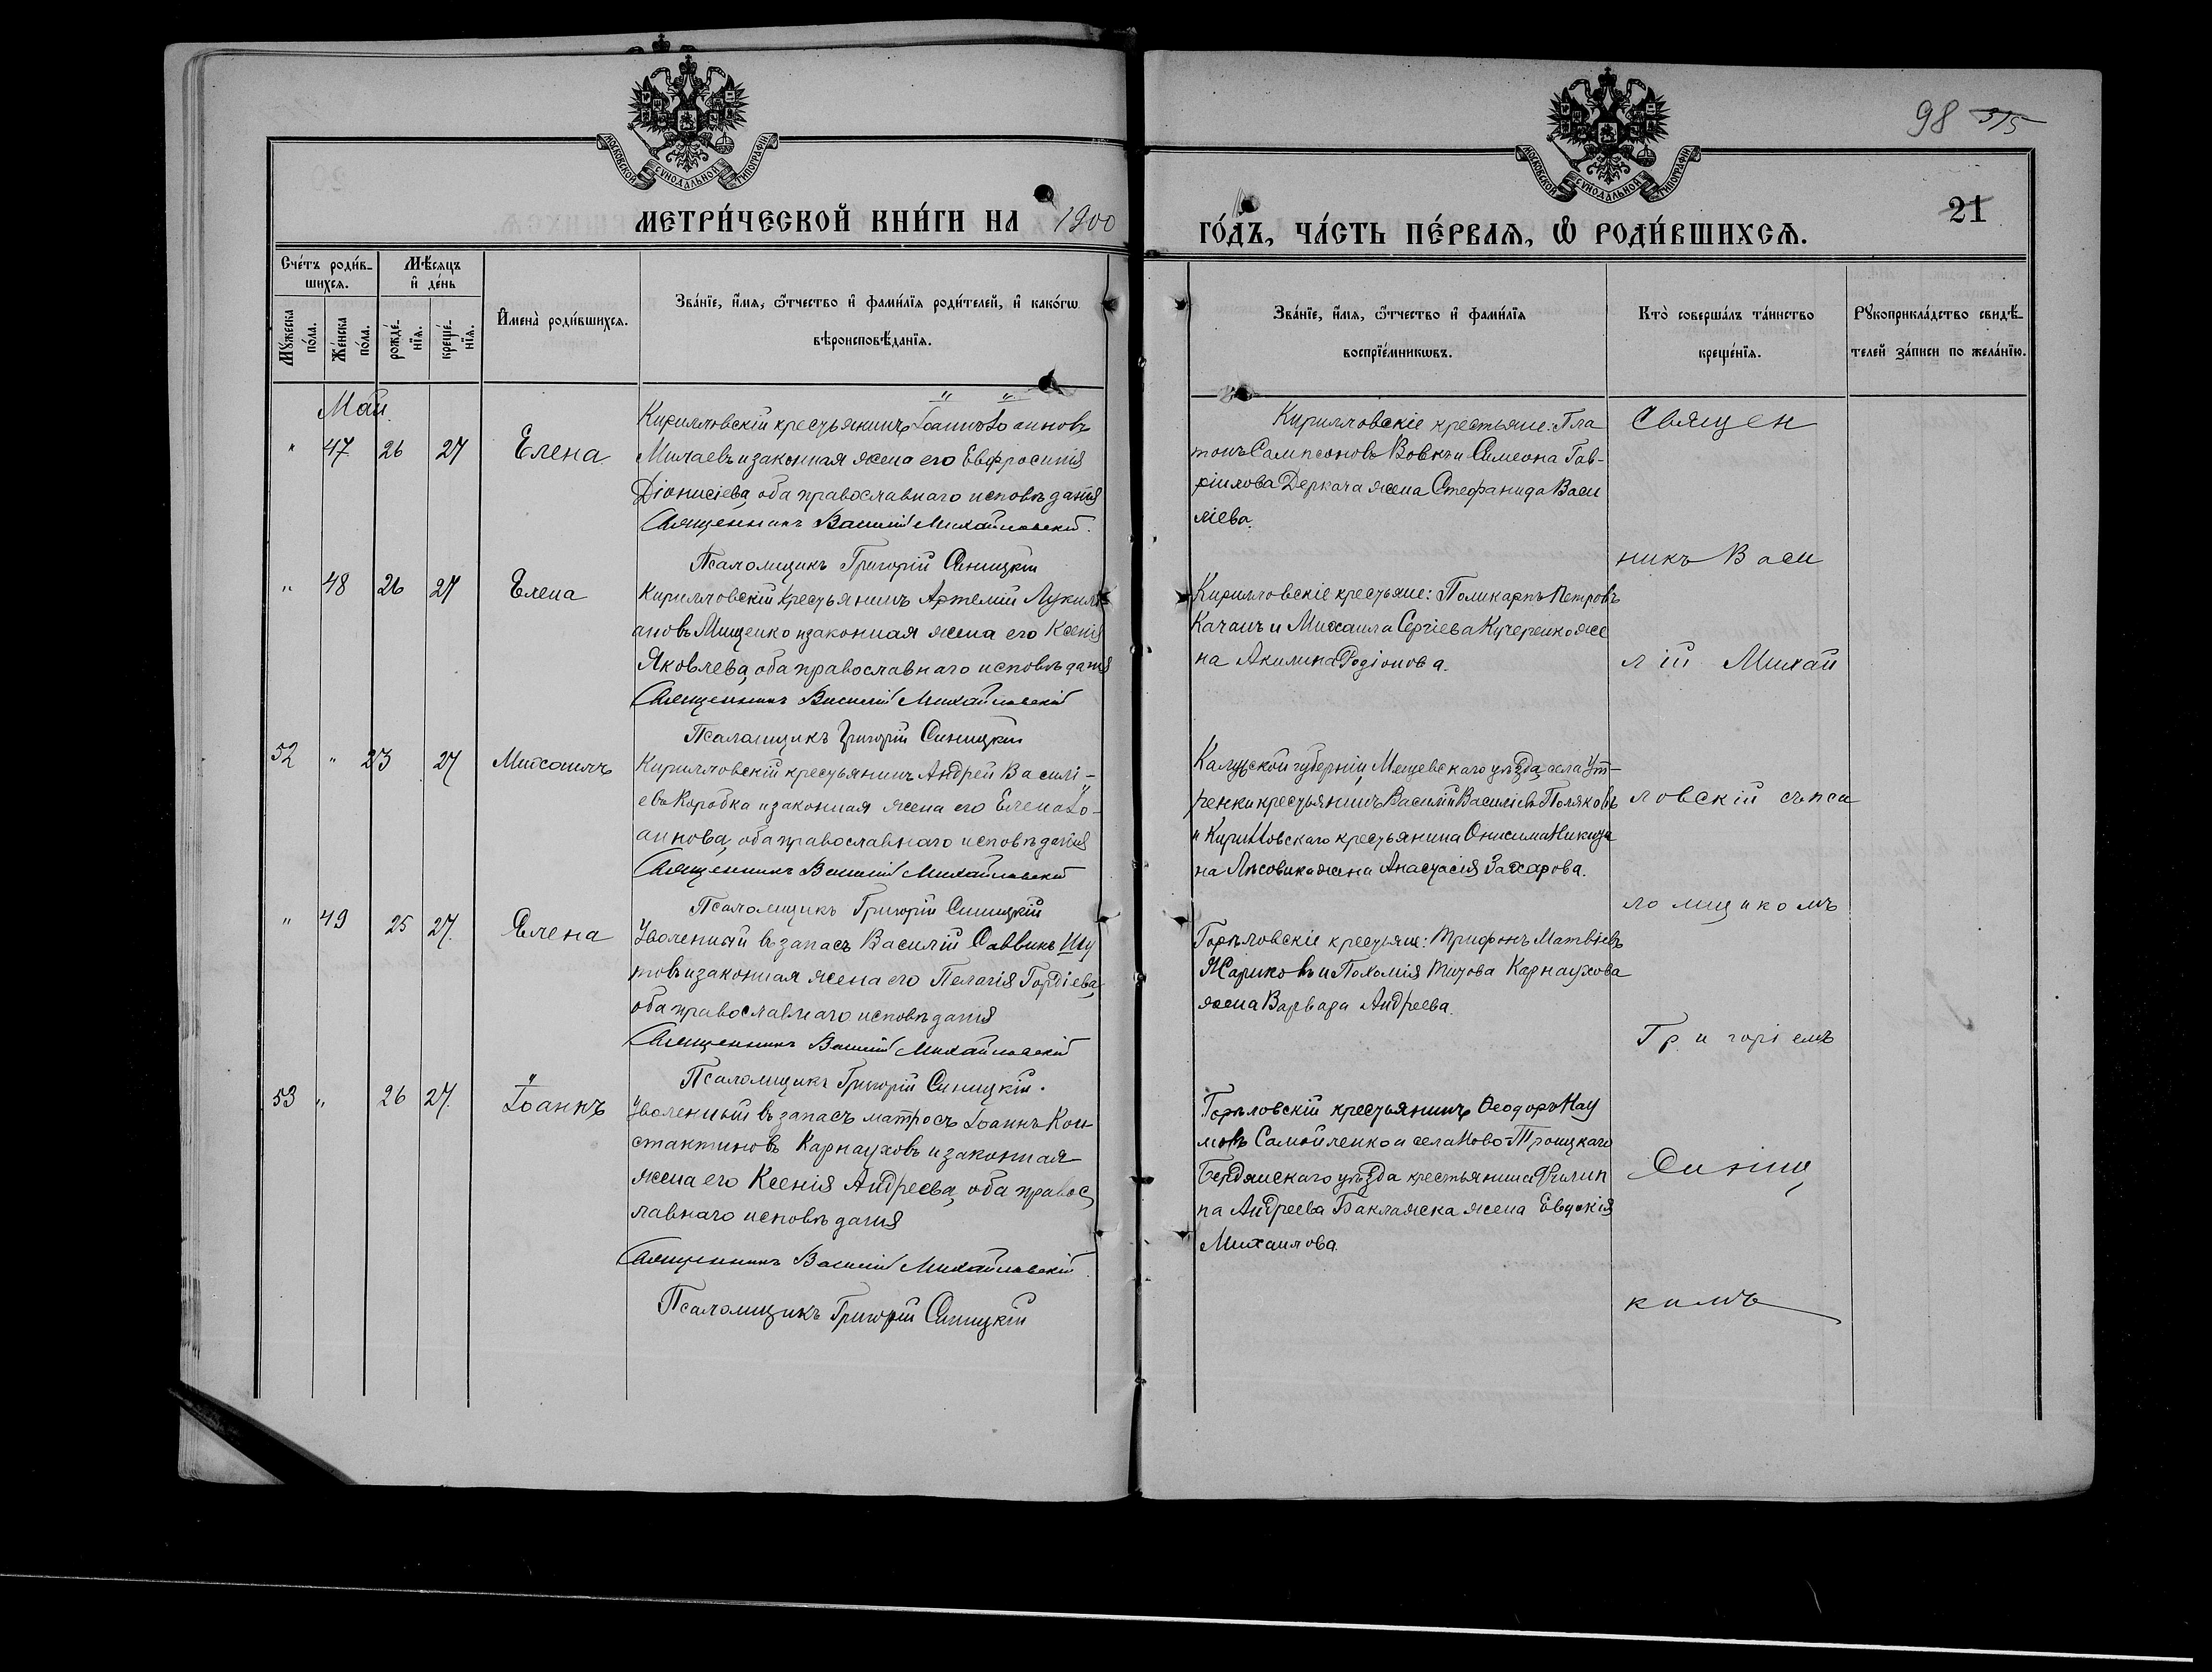 98 315
МОСКОВСКОЙ СѴНОДАЛЬНОЙ ТИПОГРАФІИ
МОСКОВСКОЙ СѴНОДАЛЬНОЙ ТИПОГРАФІИ
21
МЕТРИ́ЧЕСКОЙ КНИ́ГИ НА 1900
ГО́ДЪ, ЧА́СТЬ ПЕ́РВАЯ, Ѡ РОДИ́ВШИХСѦ.
Сче́тъ роди́в-
шихсѧ.
Мѣ́сяцъ
и҆ де́нь
Мꙋ́жеска
по́ла.
Же́нска
по́ла.
рожде́-
нїѧ.
креще́-
нїѧ.
И҆мена̀ роди́вшихсѧ.
Зва́нїе, и҆́мѧ, ѻ҆́тчество и҆ фами́лїѧ роди́телей, и҆ како́гѡ
вѣроисповѣ́данїѧ.
Зва́нїе, и҆́мѧ, ѻ҆́тчество и҆ фами́лїѧ
воспрїе́мникѡвъ.
Кто̀ соверша́лъ та́инство
креще́нїѧ.
Рꙋкоприкла́дство свидѣ́-
телей за́писи по жела́нїю.
Май
" 47 26 27 Елена
Кирилловскій крестьянинъ Іоаннъ Іоанновъ
Милаевъ и законная жена его Евфросинія
Діонисіева, оба православнаго исповѣданія
Священникъ Василій Михайловскій.
Псаломщикъ Григорій Синицкій
Кирилловскіе крестьяне: Пла
тонъ Сампсоновъ Вовкъ и Симеона Гав-
ріилова Деркача жена Стефанида Васи
ліева.
" 48 26 27 Елена
Кирилловскій крестьянинъ Артемій Лукил
ановъ Мищенко и законная жена его Ксенія
Яковлева, оба православнаго исповѣданія
Священникъ Василій Михайловскій
Псаломщикъ Григорій Синицкій
Кирилловскіе крестьяне: Поликарпъ Петровъ
Качанъ и Михаила Сергіева Кучеренко же
на Акилина Родіонова.
52 " 23 27 Михаилъ
Кирилловскій крестьянинъ Андрей Василі-
евъ Коробка и законная жена его Елена Іо-
аннова, оба православнаго исповѣданія
Священникъ Василій Михайловскій
Псаломщикъ Григорій Синицкій
Калужской губерніи, Мещевскаго уѣзда, села Ут-
ренки крестьянинъ Василій Василіевъ Поляковъ
и Кирилловскаго крестьянина Онисима Никити
на Лѣсовика жена Анастасія Захарова.
" 49 25 27. Елена
Уволенный въ запасъ Василій Саввинъ Шу
товъ и законная жена его Пелагія Гордіева,
оба православнаго исповѣданія
Священникъ Василій Михайловскій
Псаломщикъ Григорій Синицкій.
Горѣловскіе крестьяне: Трифонъ Матвіевъ
Жариковъ и Пахомія Титова Карнаухова
жена Варвара Андреева.
53 " 26 27. Іоаннъ
Уволенный въ запасъ матросъ Іоаннъ Кон
стантиновъ Карнауховъ и законная
жена его Ксенія Андреева, оба правос
лавнаго исповѣданія
Священникъ Василій Михайловскій.
Псаломщикъ Григорій Синицкій
Горѣловскій крестьянинъ Ѳеодоръ Нау
мовъ Самойленко и села Ново-Троицкаго
Бердянскаго уѣзда крестьянина Филип
па Андреева Баклажска жена Евдокія
Михаилова.
Священ
никъ Васи
лій Михай
ловскій съ пса
ломщикомъ
Григоріемъ
Синиц
кимъ